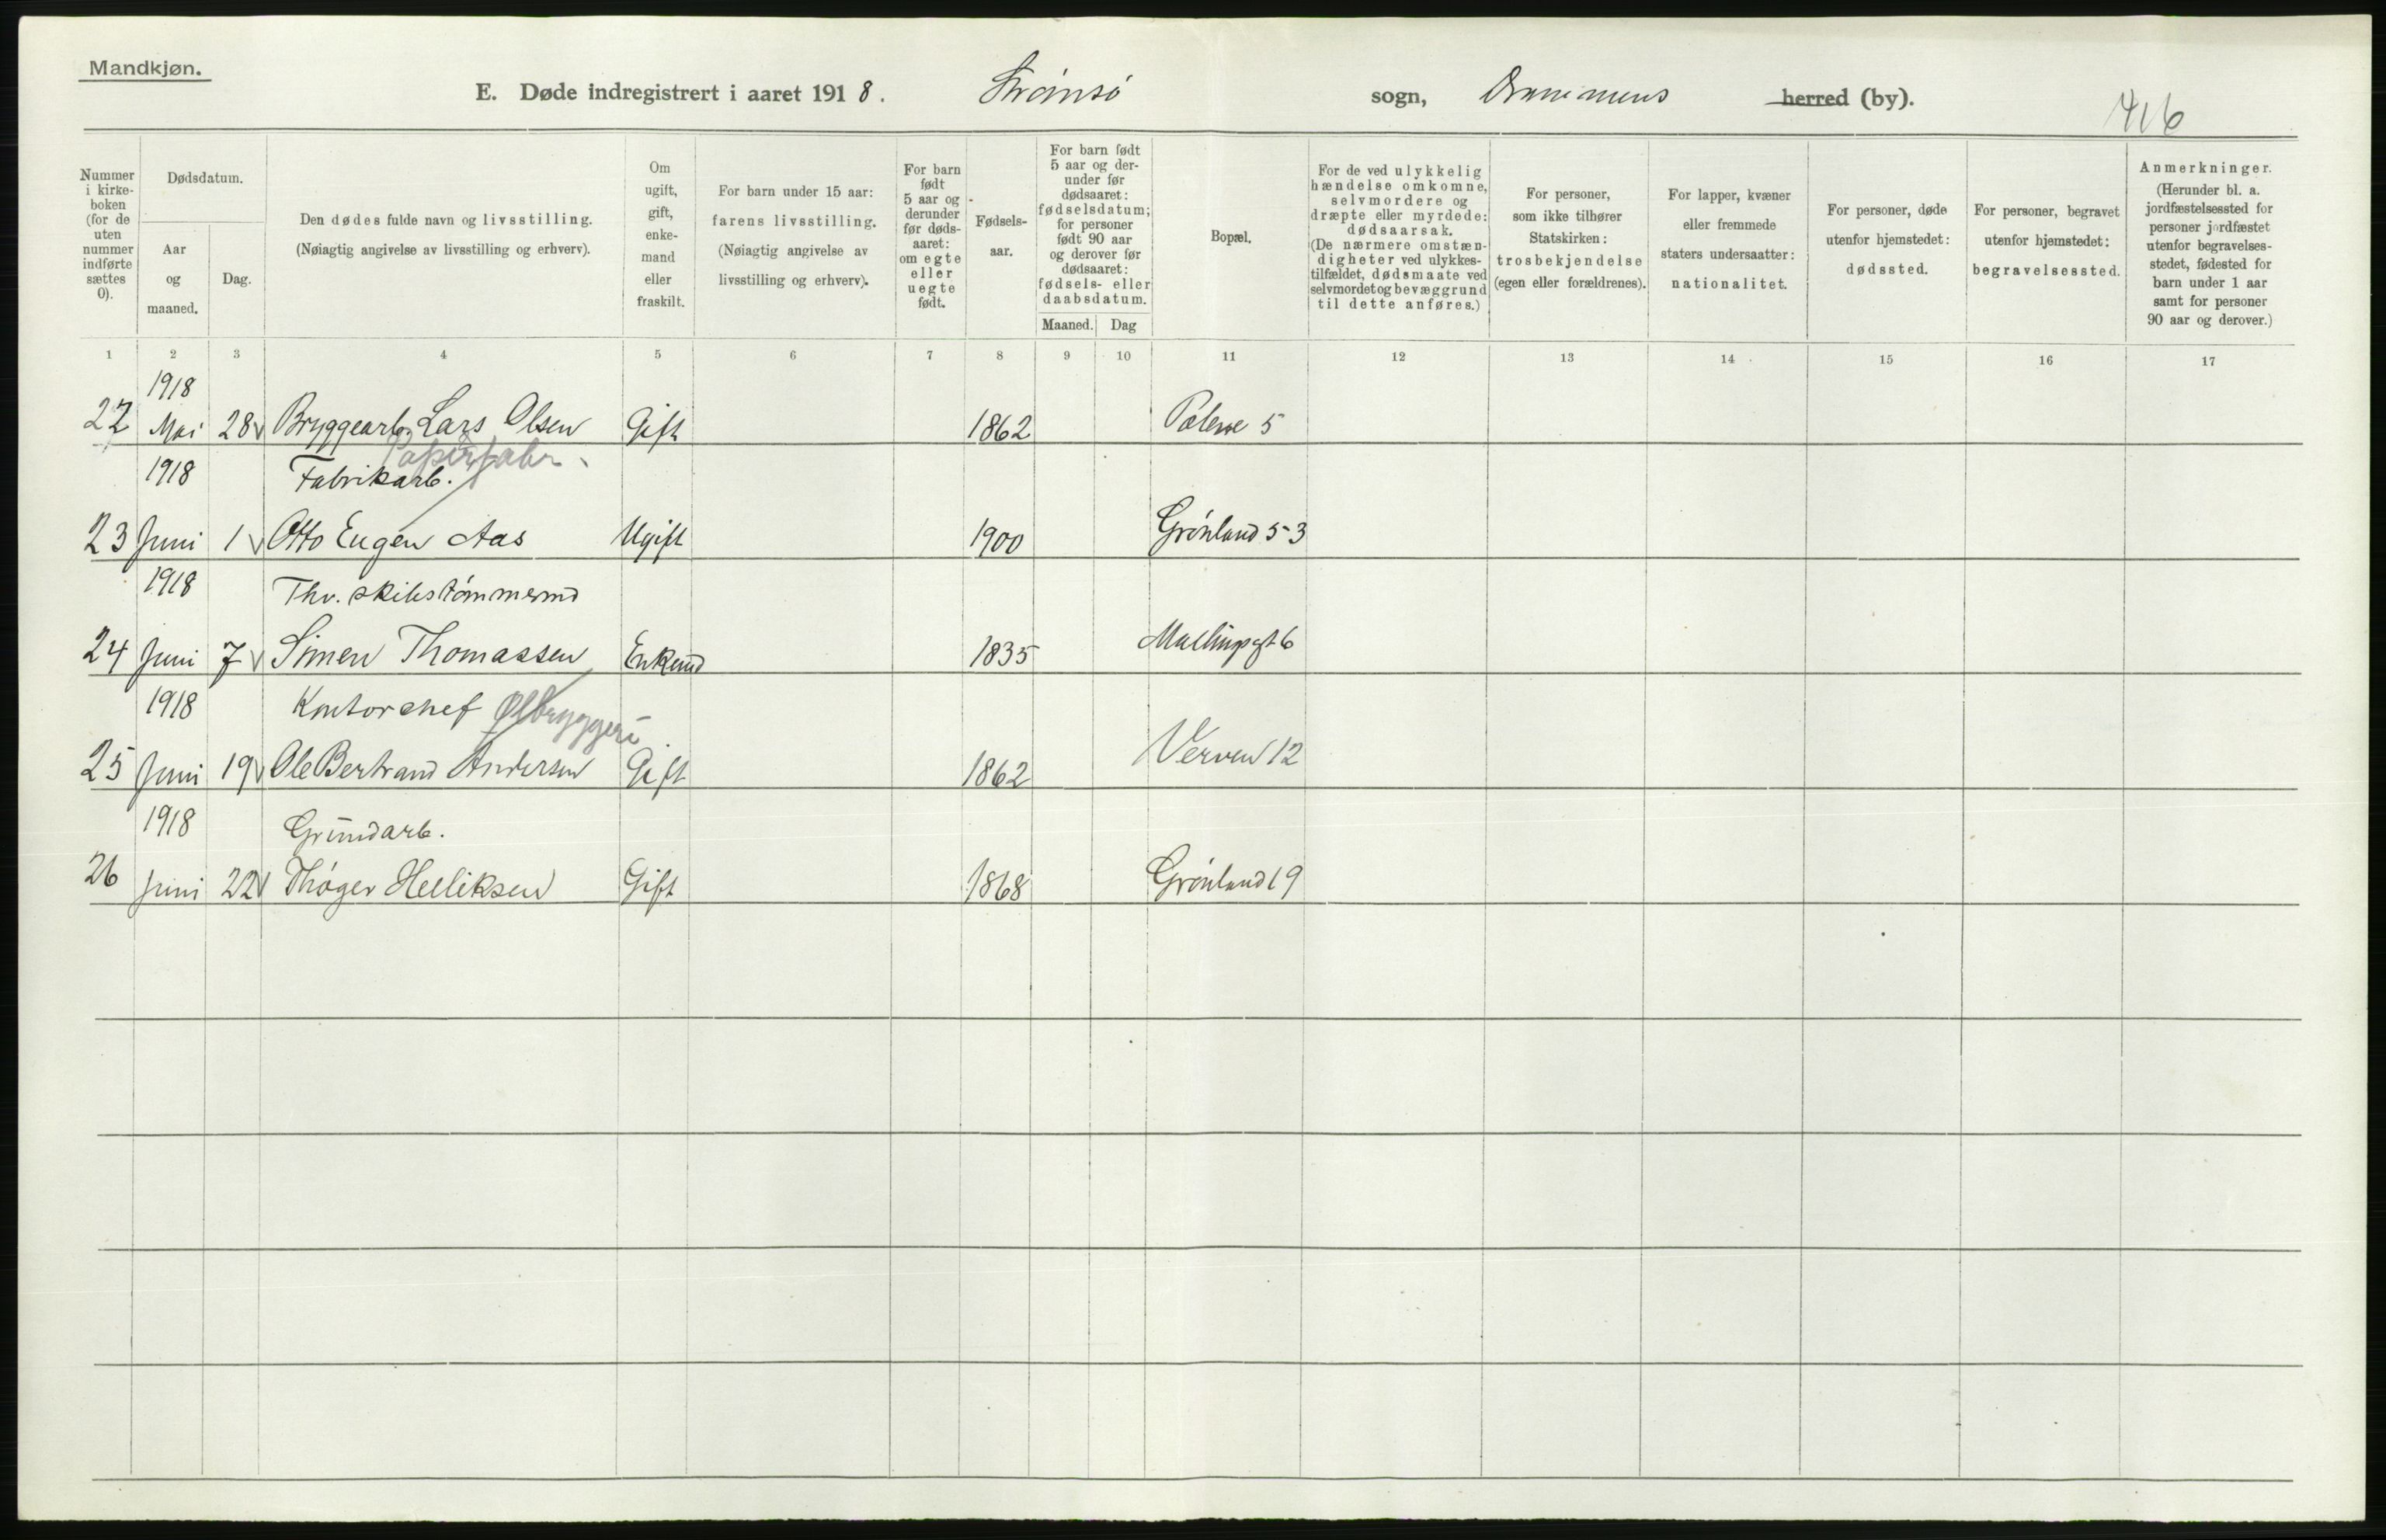 Mandkjøn.
E. Døde indregistrert i aaret 1918. Strømsø sogn, Drammens herred (by).
416
Nummer i kirke-boken (for de uten nummer indførte sættes 0).
Dødsdatum.
Aar og maaned.
Dag.
Den dødes fulde navn og livsstilling.
(Nøiagtig angivelse av livsstilling og erhverv).
Om ugift, gift, enke-mand eller fraskilt.
For barn under 15 aar:
farens livsstilling.
(Nøiagtig angivelse av livsstilling og erhverv).
For barn født 5 aar og derunder før døds-aaret: om egte eller uegte født.
Fødsels-aar.
For barn født 5 aar og der-under før dødsaaret: fødselsdatum; for personer født 90 aar og derover før dødsaaret: fødsels- eller daabsdatum.
Maaned. Dag
Bopæl.
For de ved ulykkelig hændelse omkomne, selvmordere og dræpte eller myrdede: dødsaarsak. (De nærmere omstæn-digheter ved ulykkes-tilfældet, dødsmaate ved selvmordet og bevæggrund til dette anføres.)
For personer, som ikke tilhører Statskirken: trosbekjendelse (egen eller forældrenes).
For lapper, kvæner eller fremmede staters undersaatter: nationalitet.
For personer, døde utenfor hjemstedet: dødssted.
For personer, begravet utenfor hjemstedet: begravelsessted.
Anmerkninger.
(Herunder bl. a. jordfæstelsessted for personer jordfæstet utenfor begravelses-stedet, fødested for barn under 1 aar samt for personer 90 aar og derover.)
1 2 3 4 5 6 7 8 9 10 11 12 13 14 15 16 17
1918
22 Mai 28 Bryggearb. Lars Olsen Gift 1862 5
Papirfabr.
1918 Fabrikarb.
23 Juni 1 Otto Eugen Aas Ugift 1900 Grønland 53
1918 Fhv. skibstømmermd
24 Juni 7 Simen Thomassen Enkemd 1835 Mallingsgt 6
1918 Kontorchef Ølbryggeri
25 Juni 19 Ole Bertrand Andersen Gift 1862 Verven 12
1918 Grundarb.
26 Juni 22 Thøger Helliksen Gift 1868 Grønland 19